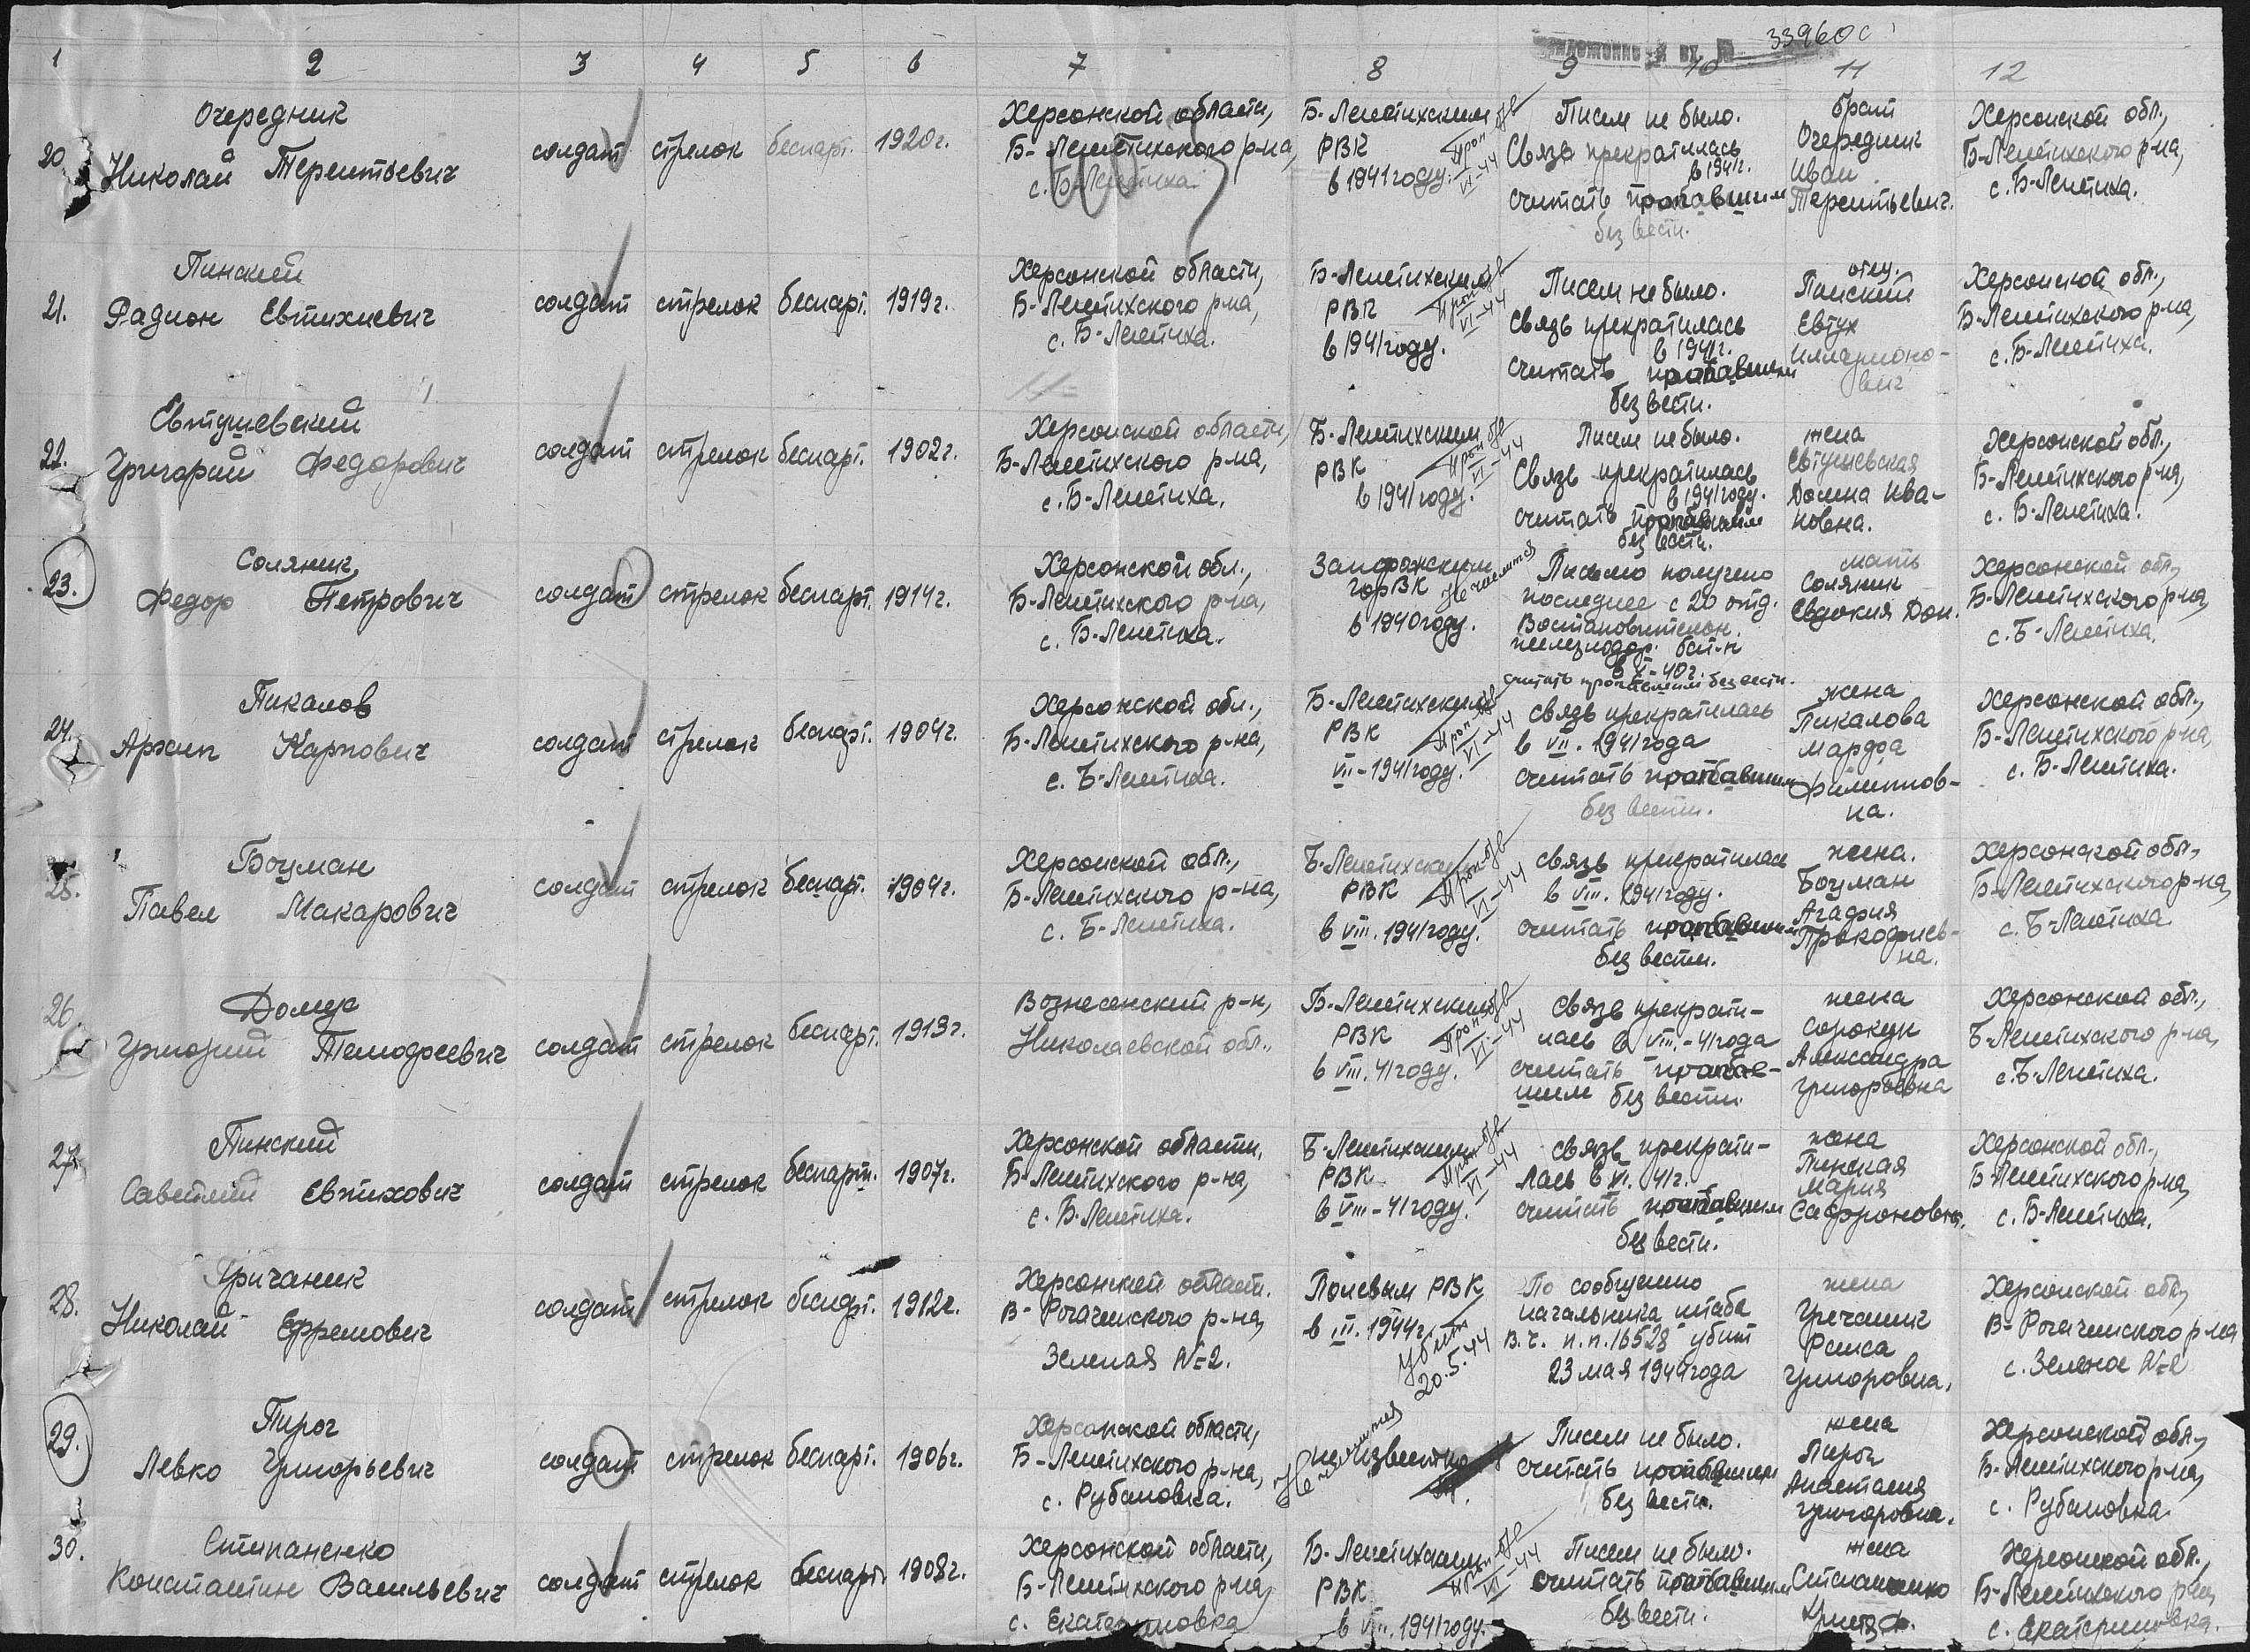 33960с
1 2 3 4 5 6 7 8 9 10 11 12
20. Очередник Николай Терентьевич
солдат
стрелок
беспарт.
1920г.
Херсонской области,
Б-Лепетихского р-на,
с. Б-Лепетиха.
Б-Лепетихским
РВК
в 1941 году.
Проп бв
VI-44
Писем не было.
Связь прекратилась
в 1941г.
считать пропавшим
без вести.
брат
Очередник
Иван
Терентьевич.
Херсонской обл.,
Б-Лепетихского р-на,
с. Б-Лепетиха.
21. Пинский
Радион Евтихиевич
солдат
стрелок
беспарт.
1919г.
Херсонской области,
Б-Лепетихского р-на,
с. Б-Лепетиха.
Б-Лепетихским
РВК
в 1941 году.
Проп бв
VI-44
Писем не было.
Связь прекратилась
в 1941г.
считать пропавшим
без вести.
отец.
Пинский
Евтух
Илларионо-
вич
Херсонской обл.,
Б-Лепетихского р-на,
с. Б-Лепетиха.
22. Евтушевский
Григорий Федорович
солдат
стрелок
беспарт.
1902г.
Херсонской области,
Б-Лепетихского р-на,
с. Б-Лепетиха.
Б-Лепетихским
РВК
в 1941 году.
Проп бв
VI-44
Писем не было.
Связь прекратилась
в 1941 году.
считать пропавшим
без вести.
жена
Евтушевская
Домна Ива-
новна.
Херсонской обл.,
Б-Лепетихского р-на,
с. Б-Лепетиха.
23. Соляник
Федор Петрович
солдат
стрелок
беспарт.
1914г.
Херсонской обл.,
Б-Лепетихского р-на,
с. Б-Лепетиха.
Запорожским
горВК
в 1940 году.
Не числится
Письмо получено
последнее с 20 отд.
Востановительн.
железнодор. бат-н
в VI-40г.
считать пропавшим без вести.
мать
Соляник
Евдокия Дон.
Херсонской обл.,
Б-Лепетихского р-на,
с. Б-Лепетиха.
24. Пикалов
Архип Карпович
солдат
стрелок
беспарт.
1904г.
Херсонской обл.,
Б-Лепетихского р-на,
с. Б-Лепетиха.
Б-Лепетихским
РВК
VII-1941 году.
Проп бв
VI-44
связь прекратилась
в VII. 1941 года
считать пропавшим
без вести.
жена
Пикалова
Марфа
Филиппов-
на.
Херсонской обл.,
Б-Лепетихского р-на,
с. Б-Лепетиха.
25. Боцман
Павел Макарович
солдат
стрелок
беспарт.
1904г.
Херсонской обл.,
Б-Лепетихского р-на,
с. Б-Лепетиха.
Б-Лепетихским
РВК
в VIII. 1941 году.
Проп бв
VI-44
связь прекратилась
в VIII. 1941 году.
считать пропавшим
без вести.
жена.
Боцман
Агафия
Прокофиев-
на.
Херсонской обл.,
Б-Лепетихского р-на,
с. Б-Лепетиха.
26.
Григорий Тимофеевич
солдат
стрелок
беспарт.
1913г.
Вознесенский р-н,
Николаевской обл.,
Б-Лепетихским
РВК
в VIII. 41 году.
Проп бв
VI-44
Связь прекрати-
лась в VIII.-41 года
считать пропав-
шим без вести
жена
Сорокун
Александра
Григорьевна
Херсонской обл.,
Б-Лепетихского р-на,
с. Б-Лепетиха.
27. Пинский
Савелий Евтихович
солдат
стрелок
беспарт.
1907г.
Херсонской области,
Б-Лепетихского р-на,
с. Б-Лепетиха.
Б-Лепетихским
РВК
в VIII-41 году.
Проп бв
VI-44
связь прекрати-
лась в VI. 41г.
считать пропавшим
без вести.
жена
Пинская
Мария
Сафроновна.
Херсонской обл.,
Б-Лепетихского р-на,
с. Б-Лепетиха.
28. Гричаник
Николай Ефремович
солдат
стрелок
беспарт.
1912г.
Херсонской области.
В-Рогачинского р-на,
Зеленая №2.
Полевым РВК
в III. 1944г.
Убит
20.5.44
По сообщению
начальника штаба
в.ч. п.п. 16528 убит
23 мая 1944 года
жена
Гречаник
Раиса
Григоровна.
Херсонской обл.,
В-Рогачинского р-на
с. Зеленое №2
29. Пирог
Левко Григорьевич
солдат
стрелок
беспарт.
1906г.
Херсонской области,
Б-Лепетихского р-на,
с. Рубановка.
Не числится
неизвестно
Писем не было.
считать пропавшим
без вести.
жена
Пирог
Анастасия
Григоровна.
Херсонской обл.,
Б-Лепетихского р-на,
с. Рубановка.
30. Степаненко
Константин Васильевич
солдат
стрелок
беспарт.
1908г.
Херсонской области,
Б-Лепетихского р-на,
с. Екатериновка
Б-Лепетихским
РВК
в VIII. 1941 году.
Проп бв
VI-44
Писем не было.
считать пропавшим
без вести.
жена
Степаненко
Херсонской обл.,
Б-Лепетихского р-на,
с. Екатериновка.